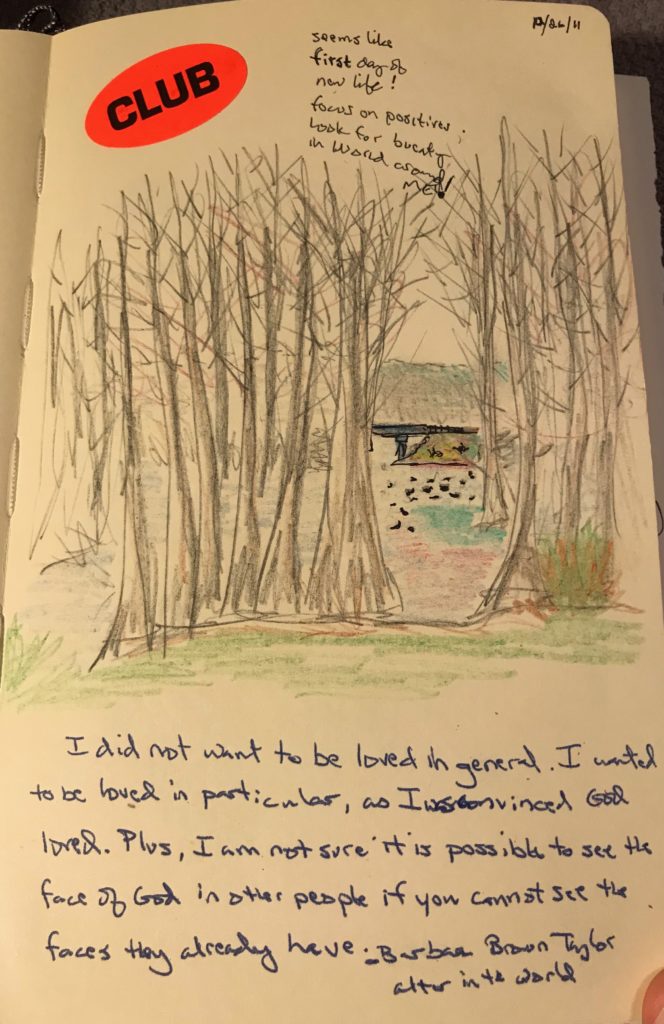 12/26/11
CLUB
seems like
first day of
new life!
focus on positives;
look for beauty
in World around
ME!
I did not want to be loved in general. I wanted
to be loved in particular, as I was convinced God
loved. Plus, I am not sure it is possible to see the
face of God in other people if you cannot see the
faces they already have. - Barbara Brown Taylor
alter in the world